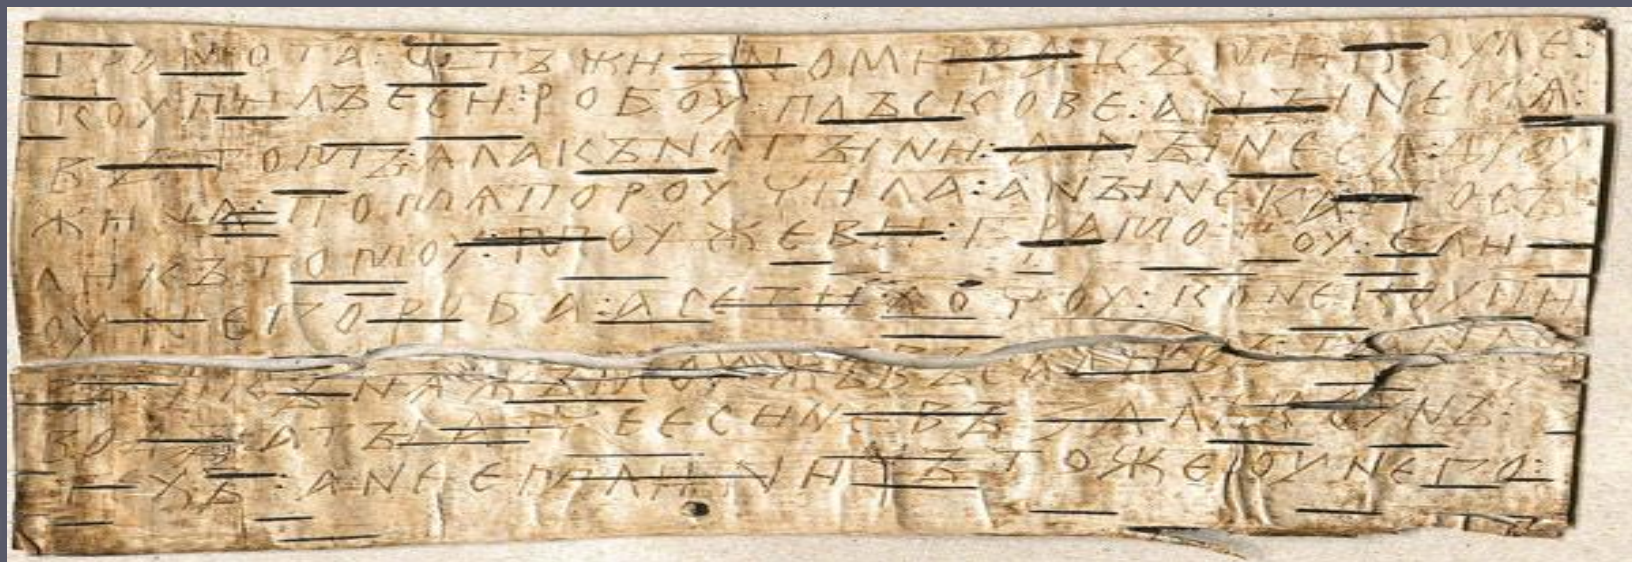 грамота : ѡтъ жизномира : къ микоуле :
коупилъ еси : робоу : плъскове : а нꙑне мѧ :
въ томъ : ѧла кънѧгꙑни : а нꙑне сѧ дроу
жина : по мѧ пороучила : а нꙑне ка : посъ
ли къ томоу : моужеви : грамотоу : е ли
оу него роба : а се ти хочоу : коне коупи
въ : и кънѧжъ моужъ въсадивъ : та на съ
водꙑ : а тꙑ атче еси не възалъ коунъ :
техъ : а не емли : ничъто же оу него :